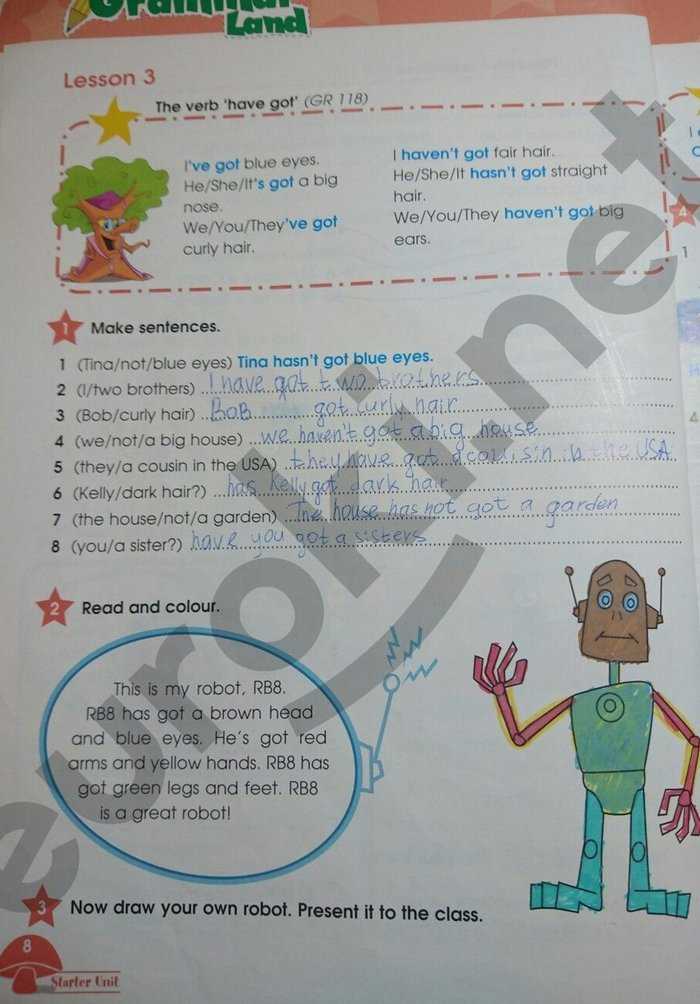 Grammar
Land
Lesson 3
The verb 'have got' (GR 118)
I've got blue eyes.
He/She/It's got a big
nose.
We/You/They've got
curly hair.
I haven't got fair hair.
He/She/It hasn't got straight
hair.
We/You/They haven't got big
ears.
1 Make sentences.
1 (Tina/not/blue eyes) Tina hasn't got blue eyes.
2 (I/two brothers) I have got two brothers
3 (Bob/curly hair) Bob got curly hair
4 (we/not/a big house) we haven't got a big house
5 (they/a cousin in the USA) they have got a cousin in the USA
6 (Kelly/dark hair?) has Kelly got dark hair
7 (the house/not/a garden) The house has not got a garden
8 (you/a sister?) have you got a sisters
2 Read and colour.
This is my robot, RB8.
RB8 has got a brown head
and blue eyes. He's got red
arms and yellow hands. RB8 has
got green legs and feet. RB8
is a great robot!
3 Now draw your own robot. Present it to the class.
8
Starter Unit
4
1
4
euroki.net